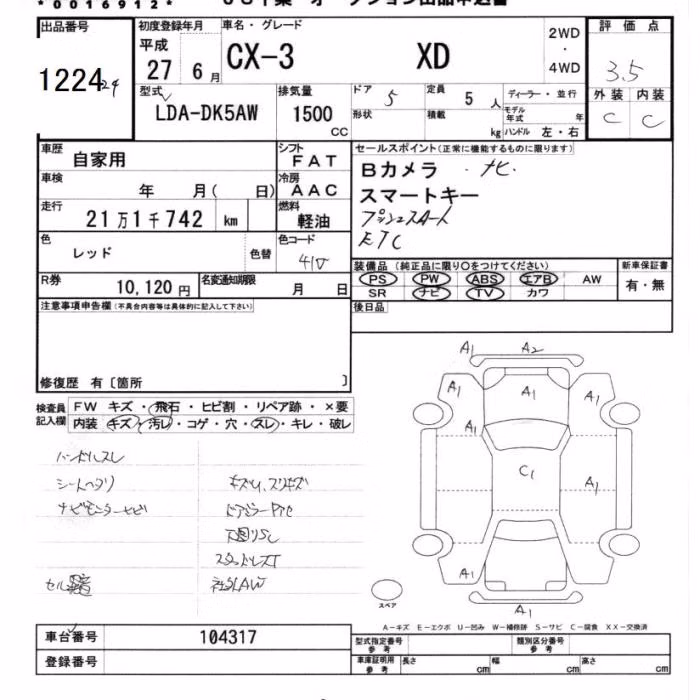 *0016912*
出品番号 初度登録年月 車名・グレード 2WD・4WD 評価点
122424 平成27 6月 CX-3 XD 3.5
型式 排気量 ドア 5 定員 5人 ディーラー・並行 外装 内装
LDA-DK5AW 1500CC 形状 積載 kg モデル年式 年 C C
ハンドル 左・右
車歴 自家用 シフト FAT セールスポイント(正常に機能するものに限ります)
車検 年 月( 日) 冷房 AAC Bカメラ ・ナビ・
走行 21万1千742 km 燃料 軽油 スマートキー
プッシュスタート
色 レッド 色替 色コード 41V ETC
R券 10,120円 名変通知期限 月 日
装備品(純正品に限り○をつけてください) 新車保証書
PS PW ABS エアB AW 有・無
SR ナビ TV カワ
注意事項申告欄(不具合内容等は具体的に記入して下さい) 後日品
修復歴 有〔箇所 〕
検査員記入欄 FW キズ・飛石・ヒビ割・リペア跡・×要
内装 キズ・汚レ・コゲ・穴・スレ・キレ・破レ
ハンドルスレ
シートヘタリ
A1 A2
A1 A1 A1
A1
C1 A1
A1
A1
スペア
A-キズ E-エクボ U-凹み W-補修跡 S-サビ C-腐食 XX-交換済
車台番号 104317 型式指定番号参考 類別区分番号参考
登録番号 車庫証明用参考 長さ cm 幅 cm 高さ cm